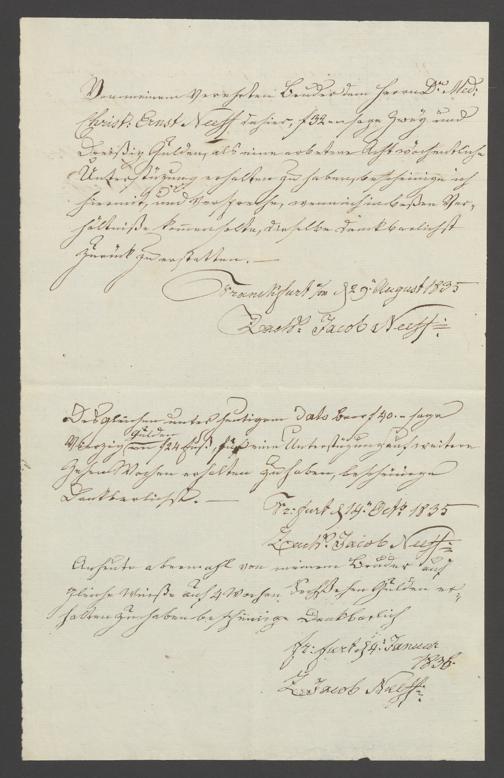 Von meinem Verehrten Bruder dem Herrn Dr. Med:
Christ: Ernst Neeff dahier, f 32 en sage Zwey und
Dreyssig Gulden, als eine erbetene Acht wöchentliche
Unterstüzung erhalten zu haben, bescheinige ich
hiermit, und Verspreche, wenn ich in beßere Ver-
hältniße kommen sollte, dieselbe Dankbarlichst
Zurück zu erstatten. —
Franckfurt a/m d 29 August 1835
Zach: Jacob Neeff
Desgleichen unter heutigem dato baar f 40. – sage
Vierzig Gulden im f 24 Fuß, für eine Unterstüzung auf weitere
Zehen Wochen erhalten zu haben, bescheinige
Dankbarlichst. —
Fr: furt d 14 Octb 1835
Zach: Jacob Neeff
Anheute abermahl von meinem Bruder auf
gleiche Weiße auf 4 Wochen Sechszehen Gulden er-
halten zu haben bescheinige Dankbarlich
Fr: furt d 4 Januar
1836.
Z. Jacob Neeff